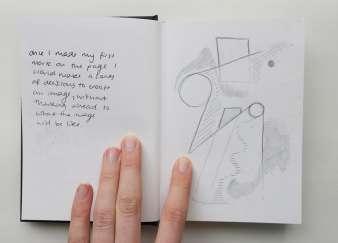 Once I made my first
mark on the page I
would make a series
of decisions to create
an image, without
thinking ahead to
what the image
will be like.